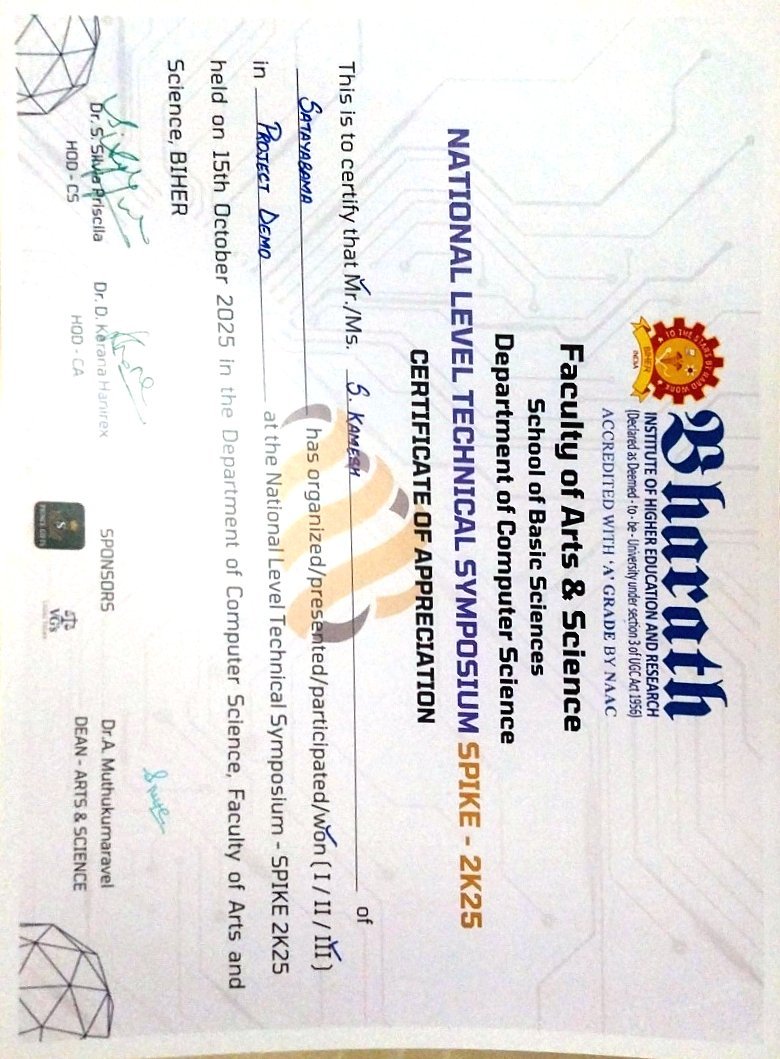 TO THE STARS BY HARD WORK
BIHER
INDIA
Bharath
INSTITUTE OF HIGHER EDUCATION AND RESEARCH
(Declared as Deemed - to - be - University under section 3 of UGC Act 1956)
ACCREDITED WITH ‘A’ GRADE BY NAAC
Faculty of Arts & Science
School of Basic Sciences
Department of Computer Science
NATIONAL LEVEL TECHNICAL SYMPOSIUM SPIKE - 2K25
CERTIFICATE OF APPRECIATION
This is to certify that Mr./Ms. S. KAMESH of
SATAYABAMA has organized/presented/participated/won ( I / II / III )
in PROJECT DEMO at the National Level Technical Symposium - SPIKE 2K25
held on 15th October 2025 in the Department of Computer Science, Faculty of Arts and
Science, BIHER
Dr. S. Silvia Priscilla
HOD - CS
Dr. D. Kerana Hanirex
HOD - CA
SPONSORS
S
PRINCE GIFTS
VG's
Dr.A. Muthukumaravel
DEAN - ARTS & SCIENCE